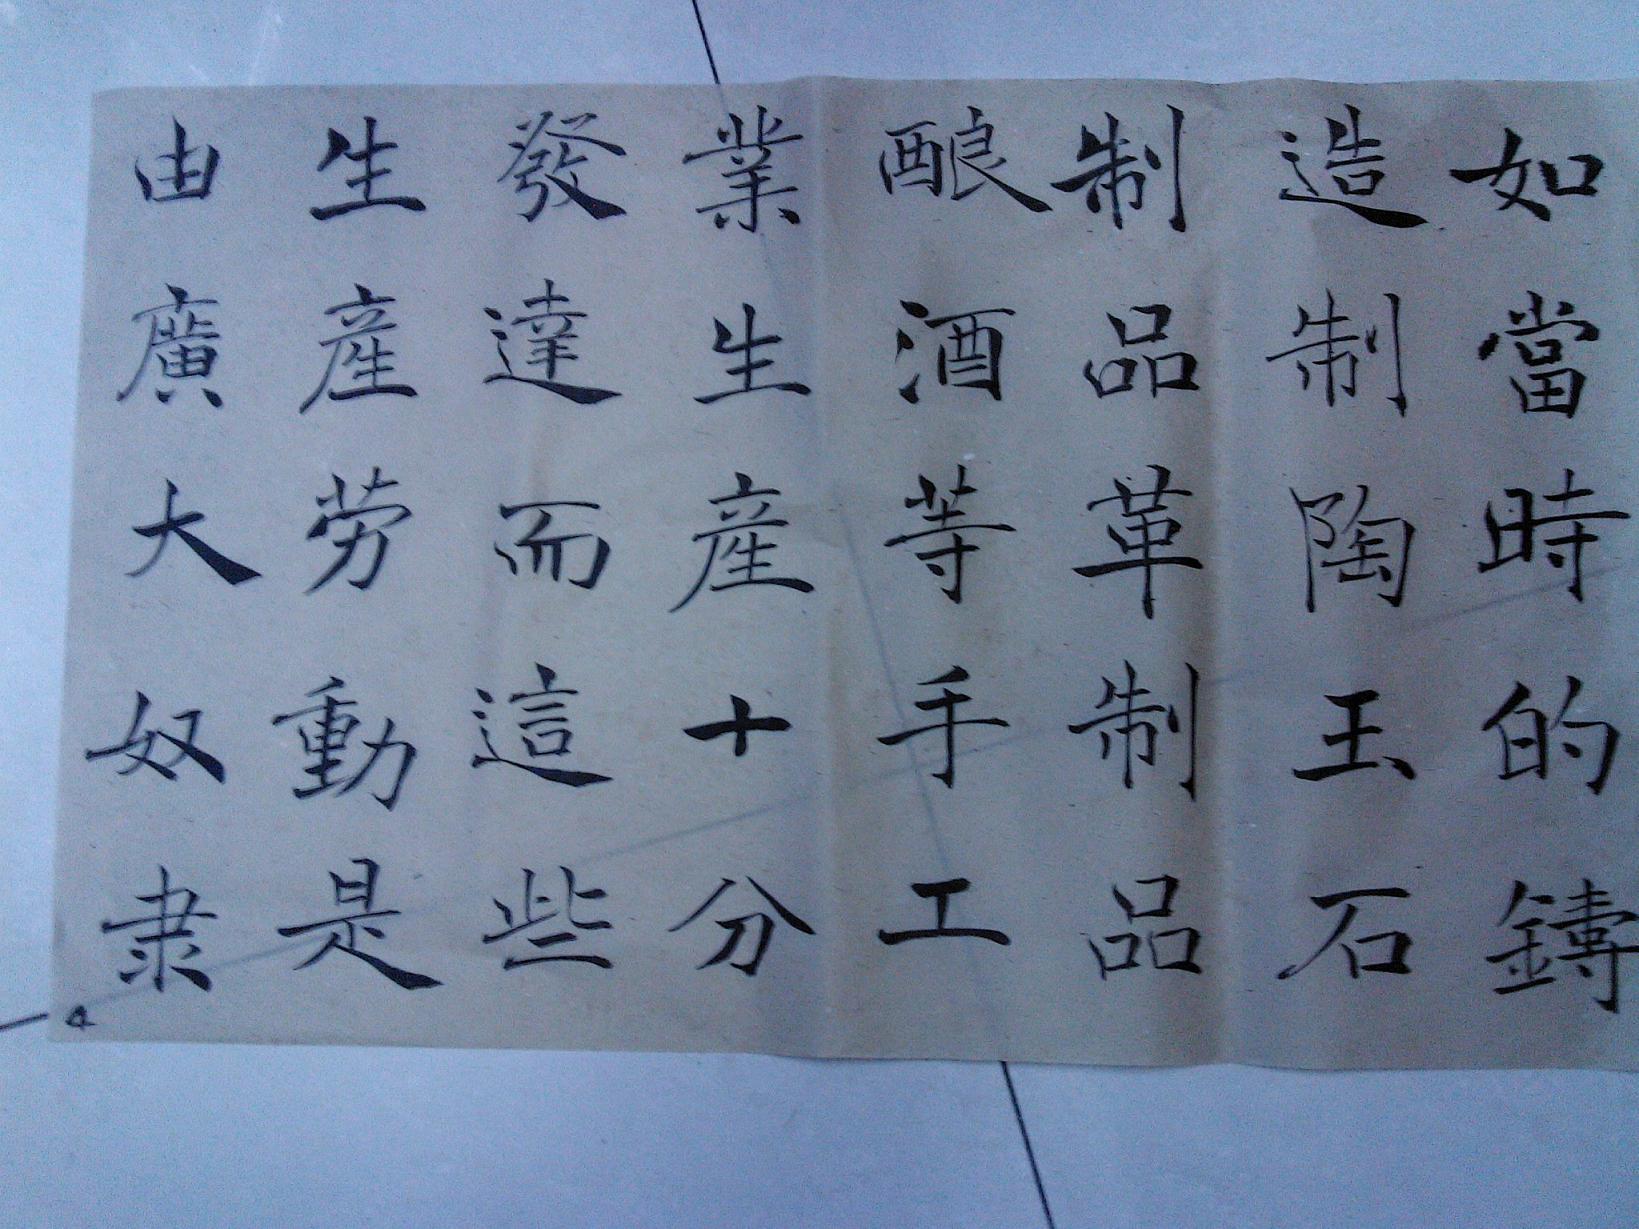 如當時的鑄
造制陶玉石
制品革制品
酿酒等手工
業生產十分
發達而這些
生產劳動是
由廣大奴隶